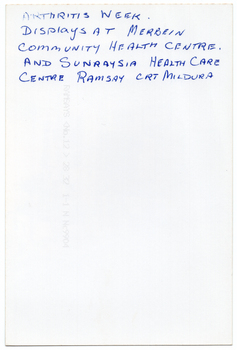 ARTHRITIS WEEK.
DISPLAYS AT MERBEIN
COMMUNITY HEALTH CENTRE.
AND SUNRAYSIA HEALTH CARE
CENTRE RAMSAY CRT MILDURA